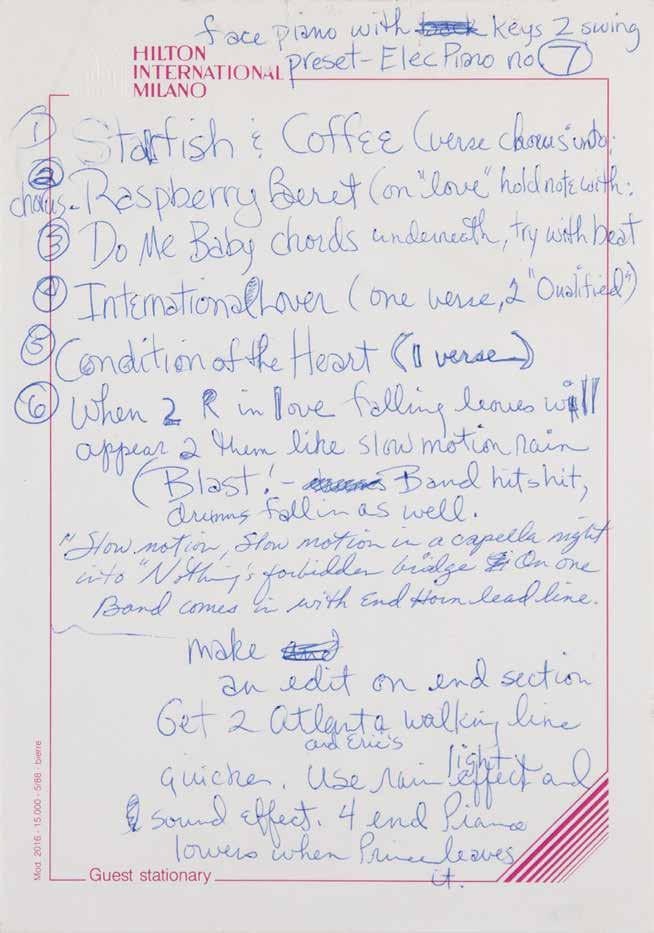 face piano with back keys 2 swing
preset - Elec Piano no 7
HILTON
INTERNATIONAL
MILANO
① Starfish & Coffee (verse chorus" into:
② chorus. Raspberry Beret (on "love" hold note with:
③ Do Me Baby chords underneath, try with beat
④ International Lover (one verse, 2 "Qualified")
⑤ Condition of the Heart (1 verse)
⑥ When 2 R in love falling leaves will
appear 2 them like slow motion rain
(Blast! - Band hits hit,
drums fall in as well.
"Slow motion, Slow motion in a capella right
into "Nothing's forbidden bridge On one
Band comes in with End Horn lead line.
make and
an edit on end section
Get 2 Atlanta walking line
and Eric's
quicker. Use rain light effect and
sound effect. 4 end Piano
lowers when Prince leaves
it.
Guest stationary
Mod. 2016 - 15.000 - 5/88 - bierre